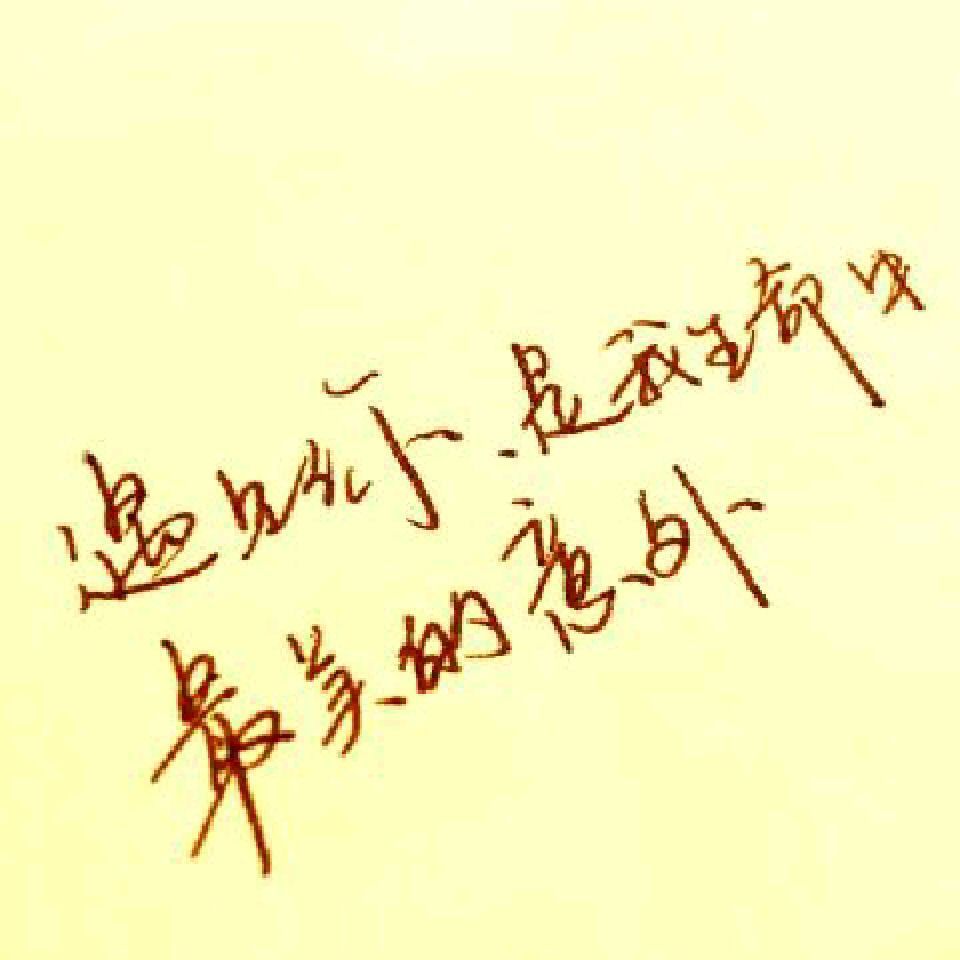 遇见你是我生命中
最美的意外